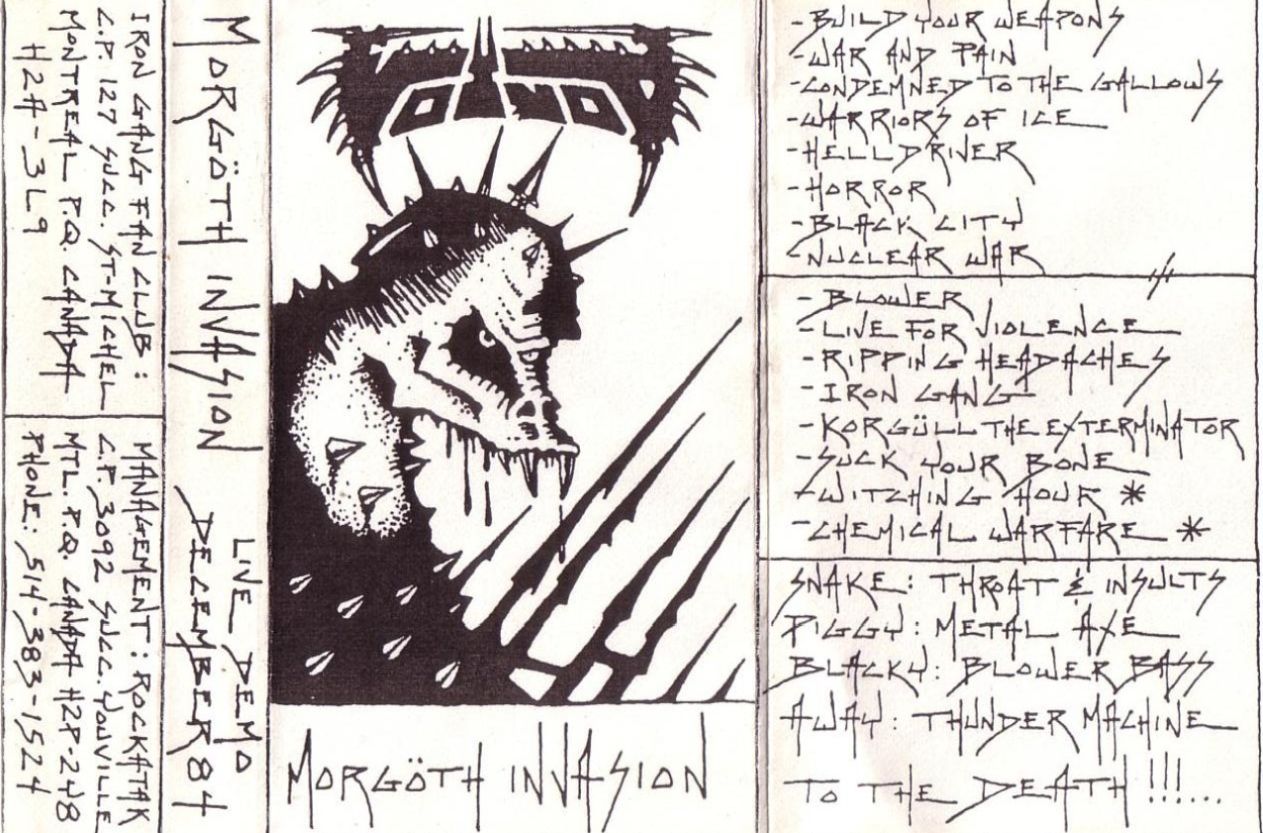 IRON GANG FAN CLUB:
C.P. 127 SUCC. ST-MICHEL
MONTREAL P.Q. CANADA
H2A-3L9
MANAGEMENT: ROCKATAK
C.P. 3092 SUCC. YOUVILLE
MTL. P.Q. CANADA H2P-2H8
PHONE: 514-383-1524
MORGÖTH INVASION
LIVE DEMO
DECEMBER 84
VOIVOD
MORGÖTH INVASION
-BUILD YOUR WEAPONS
-WAR AND PAIN
-CONDEMNED TO THE GALLOWS
-WARRIORS OF ICE
-HELLDRIVER
-HORROR
-BLACK CITY
-NUCLEAR WAR
-BLOWER
-LIVE FOR VIOLENCE
-RIPPING HEADACHES
-IRON GANG
-KORGÜLL THE EXTERMINATOR
-SUCK YOUR BONE
-WITCHING HOUR *
-CHEMICAL WARFARE *
SNAKE: THROAT & INSULTS
PIGGY: METAL AXE
BLACKY: BLOWER BASS
AWAY: THUNDER MACHINE
TO THE DEATH!!!......